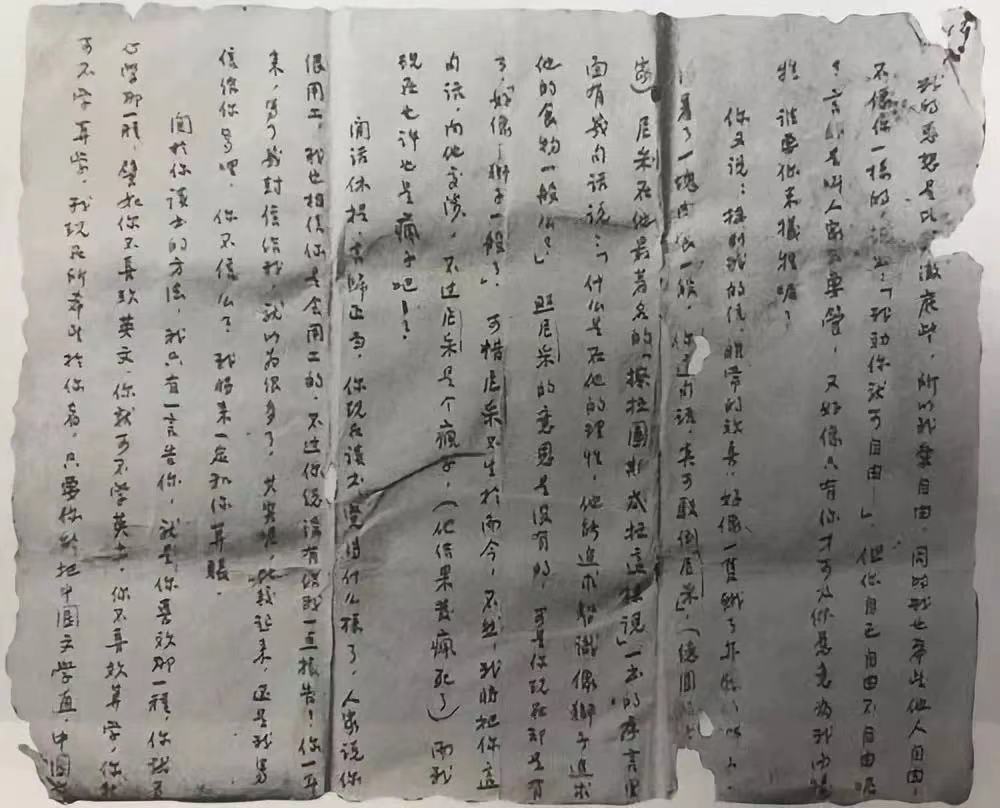 我的思想是以…澈底些，所以我爱自由，同时我也希望他人自由，
不像你一样的，…「我劝你就可自由」但你自己自由不自由呢
？言即是叫人家不要管，又好像只有你才可
牲 谁要你来牺牲呢？
你又说：接到我的信，眼常的效喜，好像一隻饿了
着了一块肉食一般，你这句话，真可驳倒尼采」（德国
家）尼采在他最著名的「擦拉图斯屈拉这样说」一书的序言里
面有幾句话说：「什么是在他的理性，他能追求智识像狮子追求
他的食物一般么？」照尼采的意思是没有的，可是你现在却是有
了，「好像狮子一般了」可惜尼采不生於而今，不然，我将把你这
句话，向他交涉，不过尼采是个瘋子，（他结果发瘋死了）而我
现在也许也是瘋子吧！？
闲话休提，言歸正寺，你现在读书觉得什么樣了，人家说你
很用工，我也相信你是会用工的，不过你总没有给我一点报告！你一年
来，写了幾封信给我，就以为很多了，其实呢，比较起来，还是我写
信给你多哩，你不信么？我将来一定和你算賬。
關於你读书的方法，我只有一言告你，就是你喜欢那一種，你就专
心学那一種，譬如你不喜欢英文，你就可不学英文，你不喜欢算学，你就
可不学算学，我现在所希望於你者，只要你能把中国文学直，中国